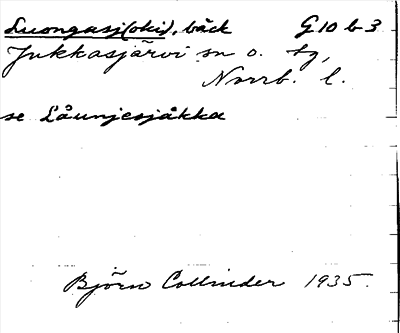 Luongasj(oki), bäck G10 b3
Jukkasjärvi sn o. tg,
Norrb. l.
se Låunjesjåkka
Björn Collinder 1935.